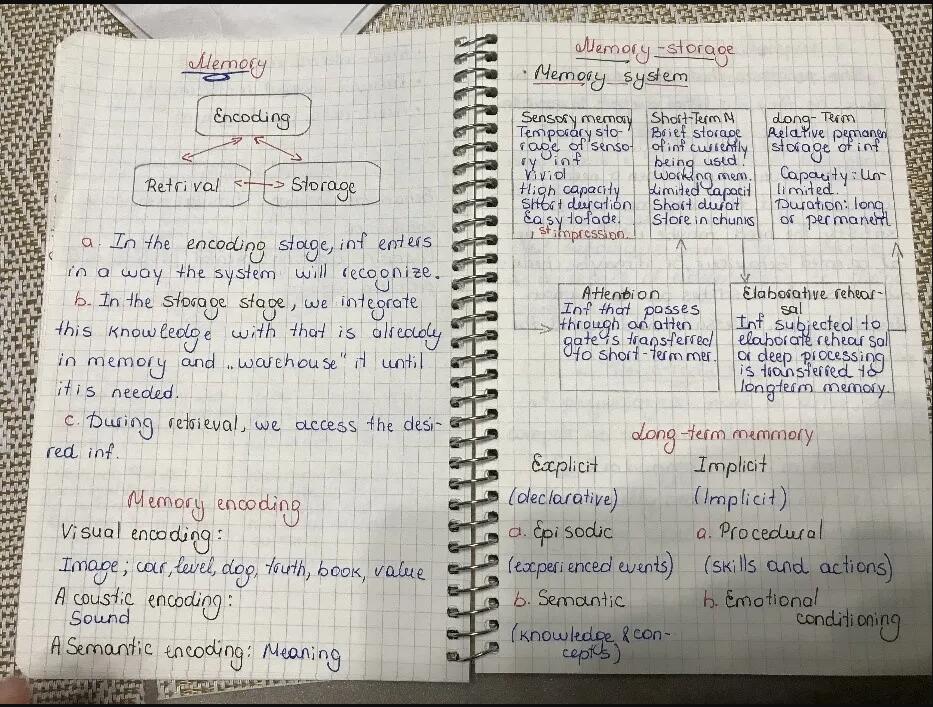 Memory
Encoding
Retrival
Storage
a. In the encoding stage, inf enters
in a way the system will recognize.
b. In the storage stage, we integrate
this knowledge with that is already
in memory and „warehouse" it until
it is needed.
c. During retrieval, we access the desi-
red inf.
Memory encoding
Visual encoding:
Image; car, level, dog, truth, book, value
Acoustic encoding:
Sound
A Semantic encoding: Meaning
Memory-storage
· Memory system
Sensory memory
Temporary sto-
rage of senso-
ry inf
Vivid
High capacity
Short duration
Easy to fade.
1st impression.
Short-Term M
Brief storage
of inf currently
being used!
Working mem.
Limited capacit
Short durat
Store in chunks
Long-Term
Relative pemanen
storage of inf
Capacity: Un-
limited.
Duration: long
or permanent
Attention
Inf that passes
through an atten
gate is transferred
to short-term mer.
Elaborative rehear-
sal
Inf subjected to
elaborate rehearsal
or deep processing
is transferred to
longterm memory.
Long-term memmory
Explicit
(declarative)
a. Episodic
(experienced events)
b. Semantic
(knowledge & con-
cepts)
Implicit
(Implicit)
a. Procedural
(skills and actions)
b. Emotional
conditioning